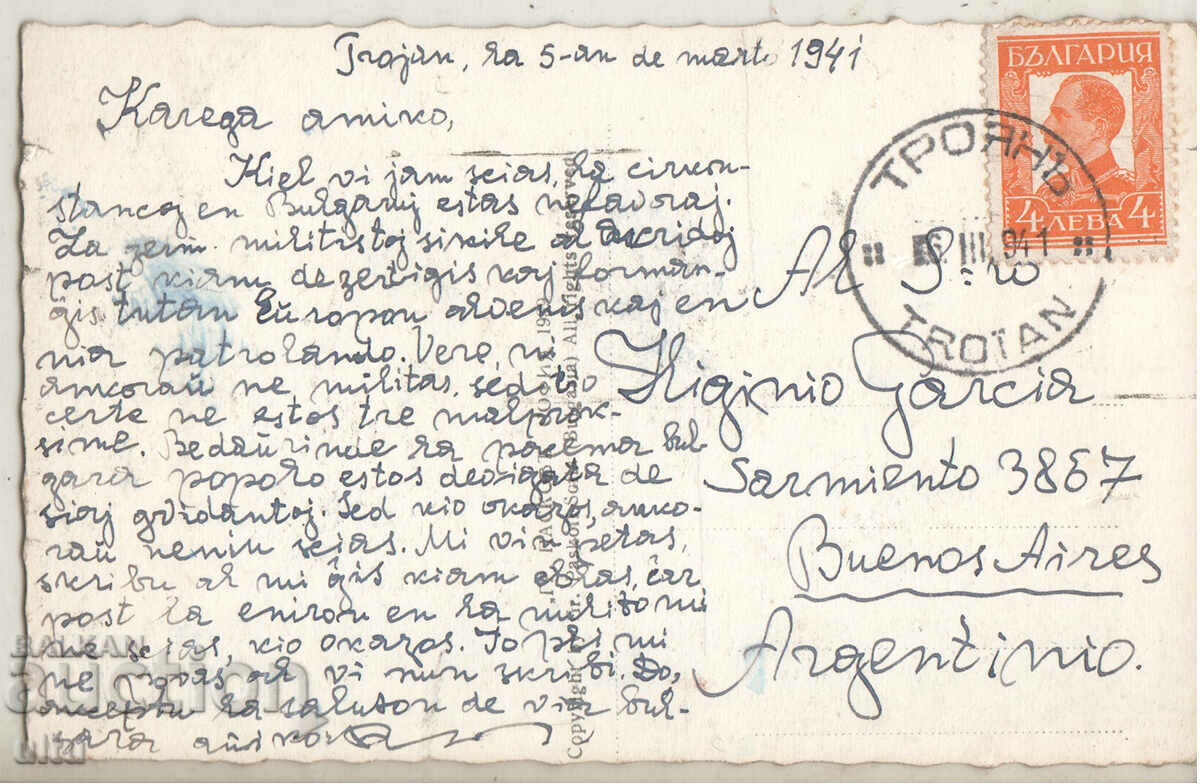 Trojan, la 5-an de marto 1941
Karega amiko,
Kiel vi jam scias, la cirkon-
stancoj en Bulgaruj estas nefavoraj.
La germ. militistoj simile al akridoj
post kiam dezertigis kaj forman-
gis tutan Europon alvenis kaj en
nia patrolando. Vere, ni
ankoraŭ ne militas, sed tio
certe ne estos tre malprok-
sime. Bedaŭrinde la pacema bul-
gara popolo estos devigata de
siaj gvidantoj. Sed kio okazos, anko-
raŭ neniu scias. Mi vin petas,
skribu al mi ĝis kiam eblas, ĉar
post la eniron en la milito mi
ne scias, kio okazos. Io pli mi
ne povas al vi nun skribi. Do,
akceptu la saluton de via bul-
gara amiko
БЪЛГАРИЯ
4 ЛЕВА 4
ТРОЯНЪ
6.III.941
TROIAN
Al S-ro
Higinio Garcia
Sarmiento 3867
Buenos Aires
Argentinio.
Copyright by Gr. Paskoff, Sofia (Bulgaria) All rights reserved
BALKAN
auction